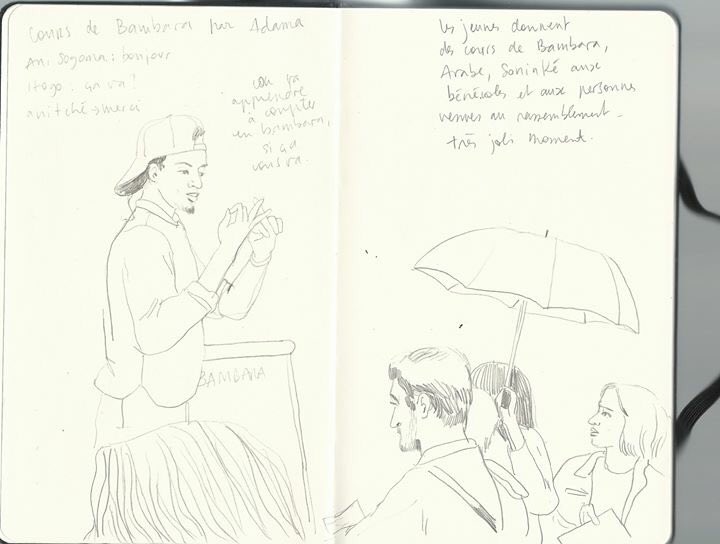 Cours de Bambara par Adama
Ani Sogoma : bonjour
Hogo : ça va ?
anitché → merci
on va
apprendre
à compter
en bambara,
si ça
vous va.
BAMBARA
les jeunes donnent
des cours de Bambara,
Arabe, Soninké aux
bénévoles et aux personnes
venues au rassemblement.
très joli moment.